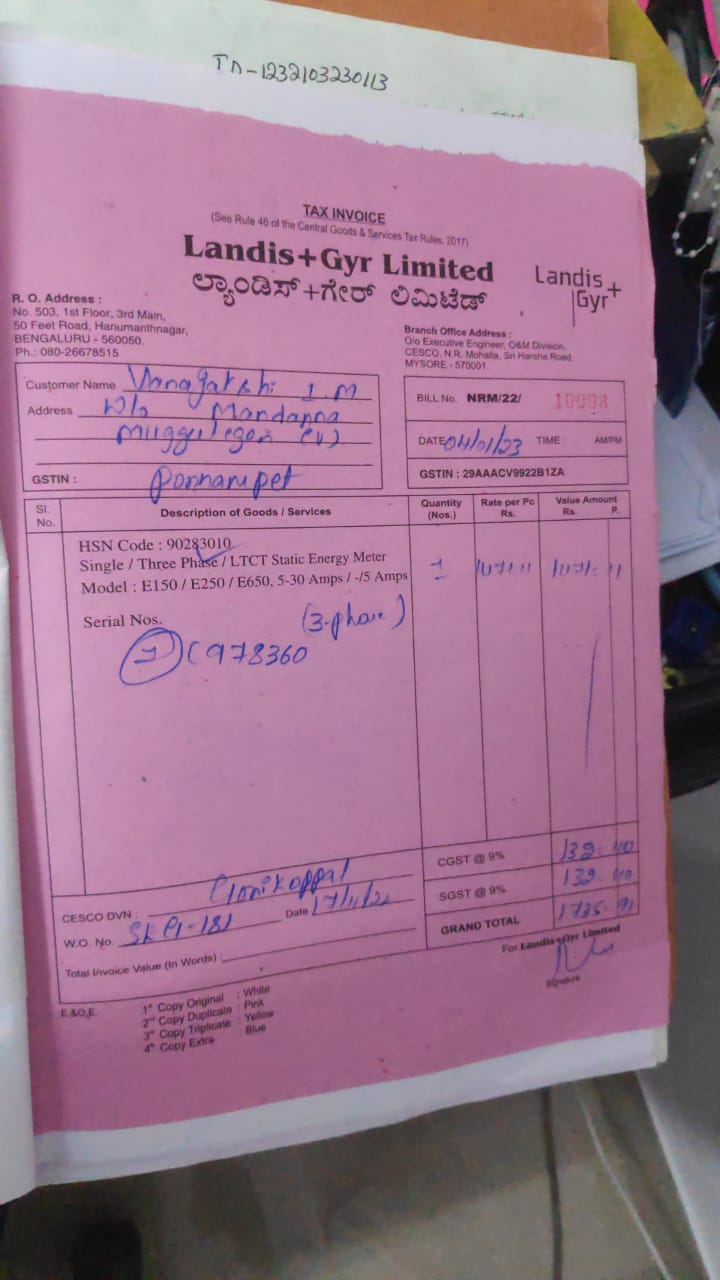 TD-1232103230113
TAX INVOICE
(See Rule 46 of the Central Goods & Services Tax Rules, 2017)
Landis+Gyr Limited
ಲ್ಯಾಂಡಿಸ್+ಗೇರ್ ಲಿಮಿಟೆಡ್
Landis+
Gyr
R. O. Address :
No. 503, 1st Floor, 3rd Main,
50 Feet Road, Hanumanthnagar,
BENGALURU - 560050.
Ph.: 080-26678515
Branch Office Address :
O/o Executive Engineer, O&M Division,
CESCO, N.R. Mohalla, Sri Harsha Road,
MYSORE - 570001.
Customer Name
Address W/o Mandanna
(V)
GSTIN : Ponnampet
BILL No. NRM/22/
DATE 04/01/23 TIME : AM/PM
GSTIN : 29AAACV9922B1ZA
Sl. No. Description of Goods / Services Quantity (Nos.) Rate per Pc Rs. Value Amount Rs. P.
HSN Code : 90283010
Single / Three Phase / LTCT Static Energy Meter
Model : E150 / E250 / E650, 5-30 Amps / -/5 Amps 1
Serial Nos. (3-phase)
1 C978360
CGST @ 9% 132. 40
SGST @ 9% 132. 40
GRAND TOTAL 91
CESCO DVN :
W.O. No. Date 17/11/22
Total Invoice Value (In Words) :
For Landis+Gyr Limited
Signature
E.&O.E.
1st Copy Original : White
2nd Copy Duplicate : Pink
3rd Copy Triplicate : Yellow
4th Copy Extra : Blue